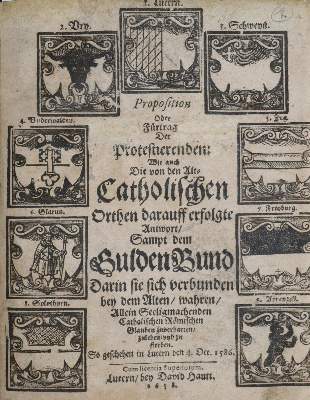 1. Lucern.
2. Vry.
3. Schweytz.
4. Vnderwalden.
5. Zug.
6. Glarus.
7. Freyburg.
8. Solothurn.
9. Appenzell.
Proposition
Oder
Fürtrag
Der
Protestierenden:
Wie auch
Die von den Alt-
Catholischen
Orthen darauff erfolgte
Antwort/
Sampt dem
Gulden Bund
Darin sie sich verbunden
bey dem Alten/ wahren/
Allein Seeligmachenden
Catholischen Römischen
Glauben zuverharren/
zuleben vnd zu
sterben.
So geschehen in Lucern den 4. Oct. 1586.
Cum licentia Superiorum.
Lucern/ bey David Hautt.